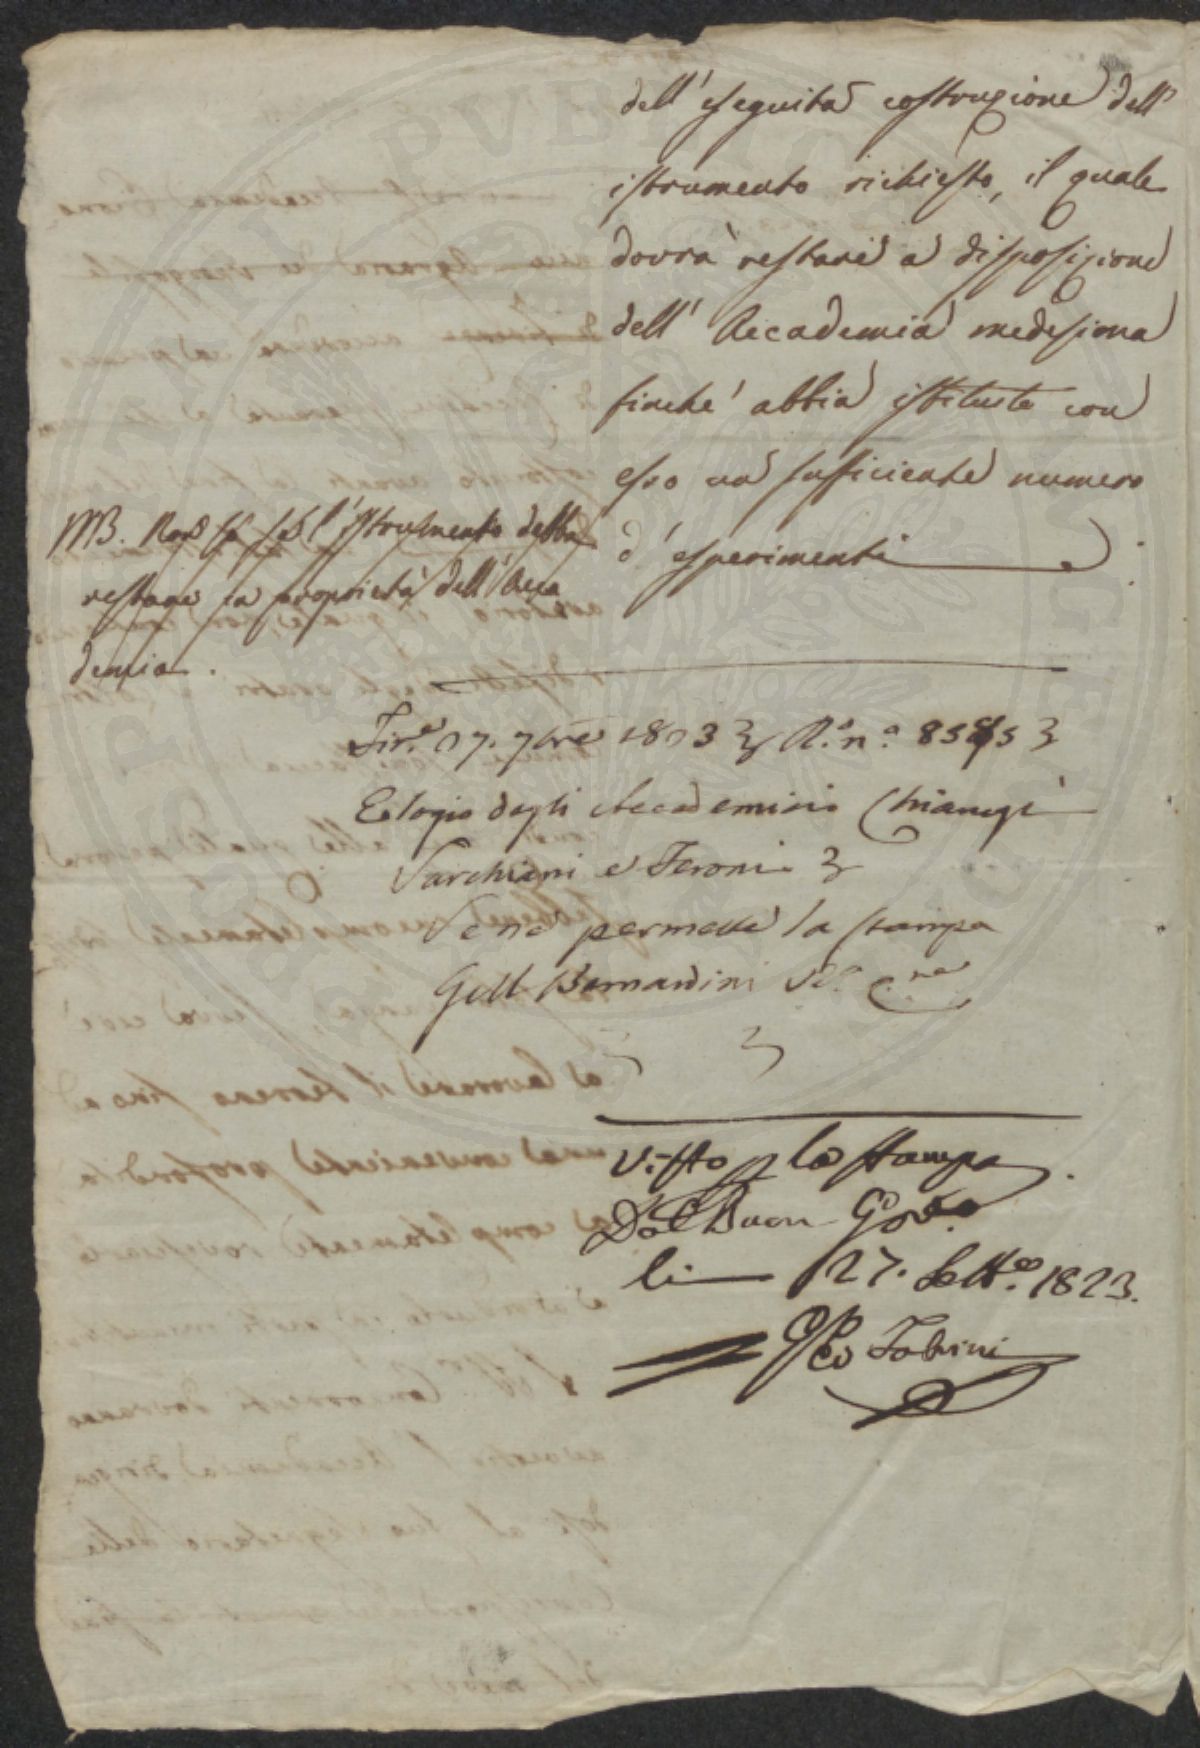 dell' eseguita costruzione dell'
istrumento richiesto, il quale
dovrà restare a disposizione
dell' Accademia medesima
finchè abbia istituite con
esso un sufficiente numero
d' esperimenti
NB. Non so se l'istrumento debba
restare in proprietà dell' Acca
demia.
Fir.e 17. 7bre 1823 R.o n.o
Elogio degli Accademici Chiarugi
Sarchiani e Feroni
Se ne permette la stampa
Bernardini
Visto p la stampa
Dal Buon Gov.o
li 27. Sett.e 1823.
Fabrini